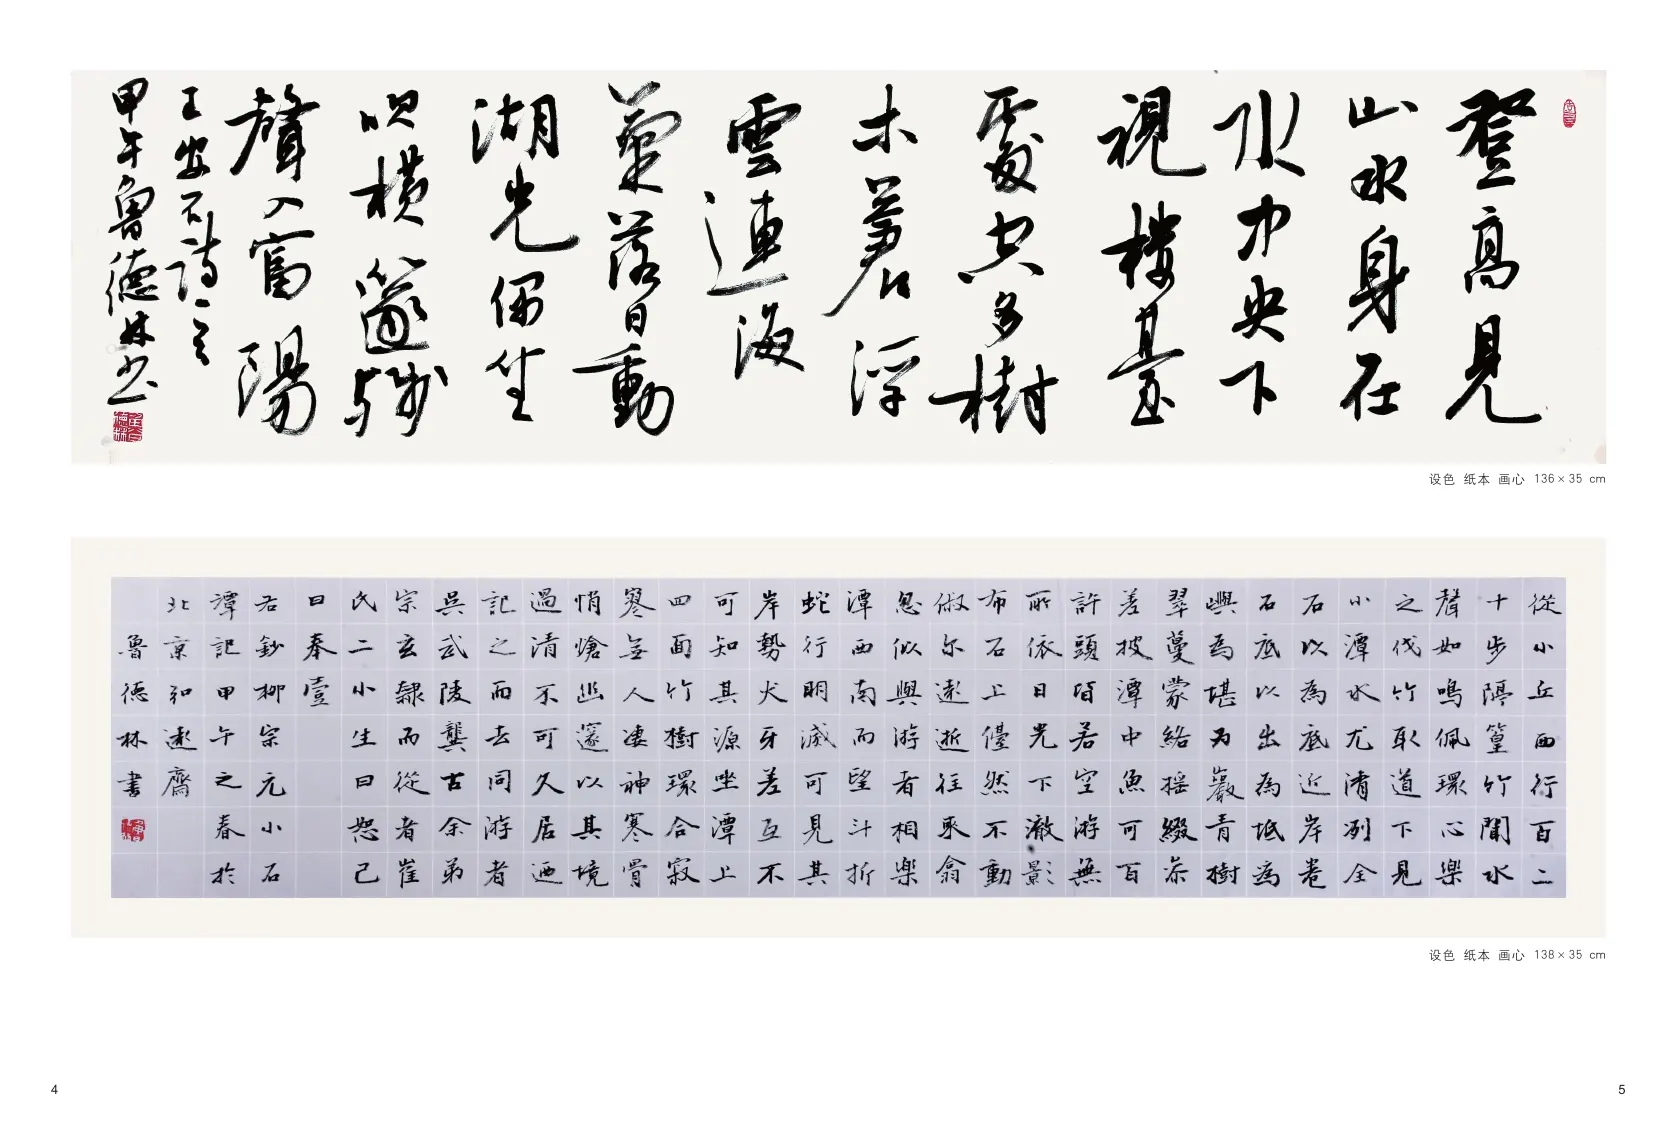 登高見
山水身在
水中央下
視樓臺
處空多樹
木蒼浮
雲連海
氣落日動
湖光偶坐
吹橫篴殘
聲入富陽
王安石詩一首
甲午魯德林書
设色 纸本 画心 136×35 cm
從小丘西行百二
十步隔篁竹聞水
聲如鳴佩環心樂
之伐竹取道下見
小潭水尤清冽全
石以為底近岸卷
石底以出為坻為
嶼為堪為巖青樹
翠蔓蒙絡搖綴參
差披潭中魚可百
許頭皆若空游無
所依日光下澈影
布石上佁然不動
俶尔遠逝往來翕
忽似與游者相樂
潭西南而望斗折
蛇行明滅可見其
岸勢犬牙差互不
可知其源坐潭上
四面竹樹環合寂
寥無人凄神寒骨
悄愴幽邃以其境
過清不可久居迺
記之而去同游者
吳武陵龔古余弟
宗玄隸而從者崔
氏二小生曰恕己
曰奉壹
右鈔柳宗元小石
潭記甲午之春於
北京弘遠齋
魯德林書
设色 纸本 画心 138×35 cm
4
5